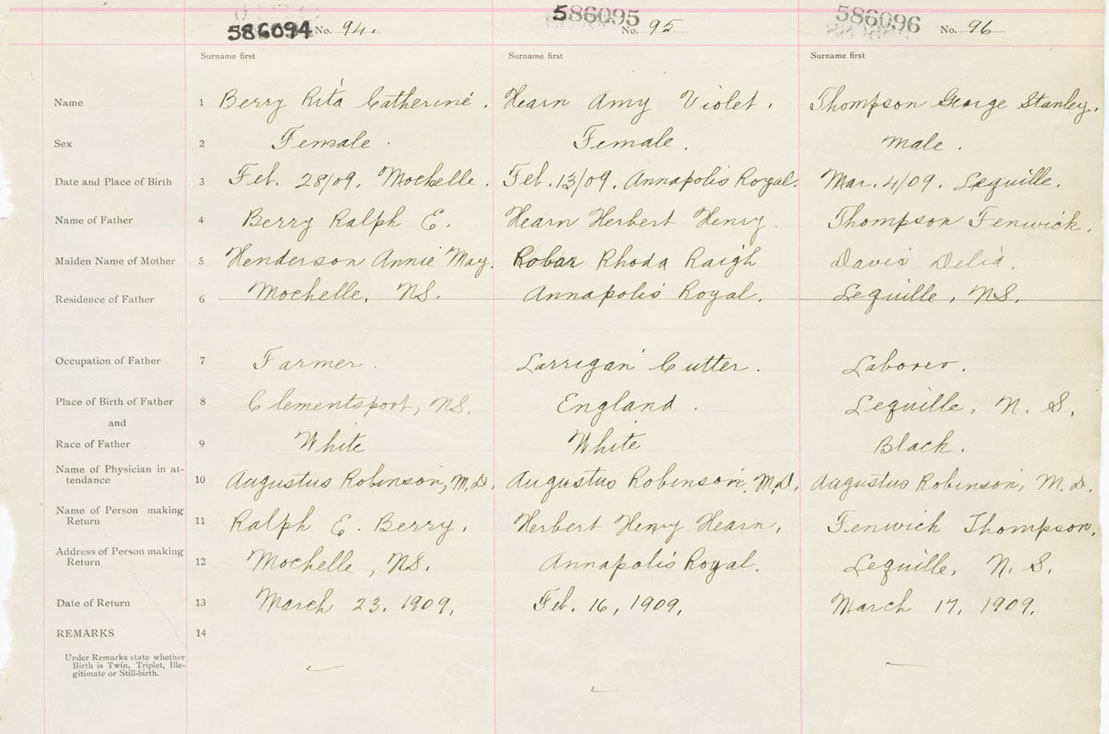 586094 No. 94. 586095 No. 95 586096 No. 96
Surname first Surname first Surname first
Name 1 Berry Rita Catherine. Hearn Amy Violet. Thompson George Stanley.
Sex 2 Female. Female. Male.
Date and Place of Birth 3 Feb. 28/09. Mochelle. Feb. 13/09. Annapolis Royal. Mar. 4/09. Lequille.
Name of Father 4 Berry Ralph E. Hearn Herbert Henry. Thompson Fenwick.
Maiden Name of Mother 5 Henderson Annie May. Robar Rhoda Raigh Davis Delia.
Residence of Father 6 Mochelle, NS. Annapolis Royal. Lequille, NS.
Occupation of Father 7 Farmer. Larrigan Cutter. Laborer.
Place of Birth of Father 8 Clementsport, NS. England. Lequille, N. S.
and
Race of Father 9 White White Black.
Name of Physician in at-
tendance 10 Augustus Robinson, M.D. Augustus Robinson, M.D. Augustus Robinson, M.D.
Name of Person making
Return 11 Ralph E. Berry. Herbert Henry Hearn. Fenwick Thompson.
Address of Person making
Return 12 Mochelle, NS. Annapolis Royal. Lequille, N. S.
Date of Return 13 March 23, 1909. Feb. 16, 1909. March 17, 1909.
REMARKS 14
Under Remarks state whether
Birth is Twin, Triplet, Ille-
gitimate or Still-birth.